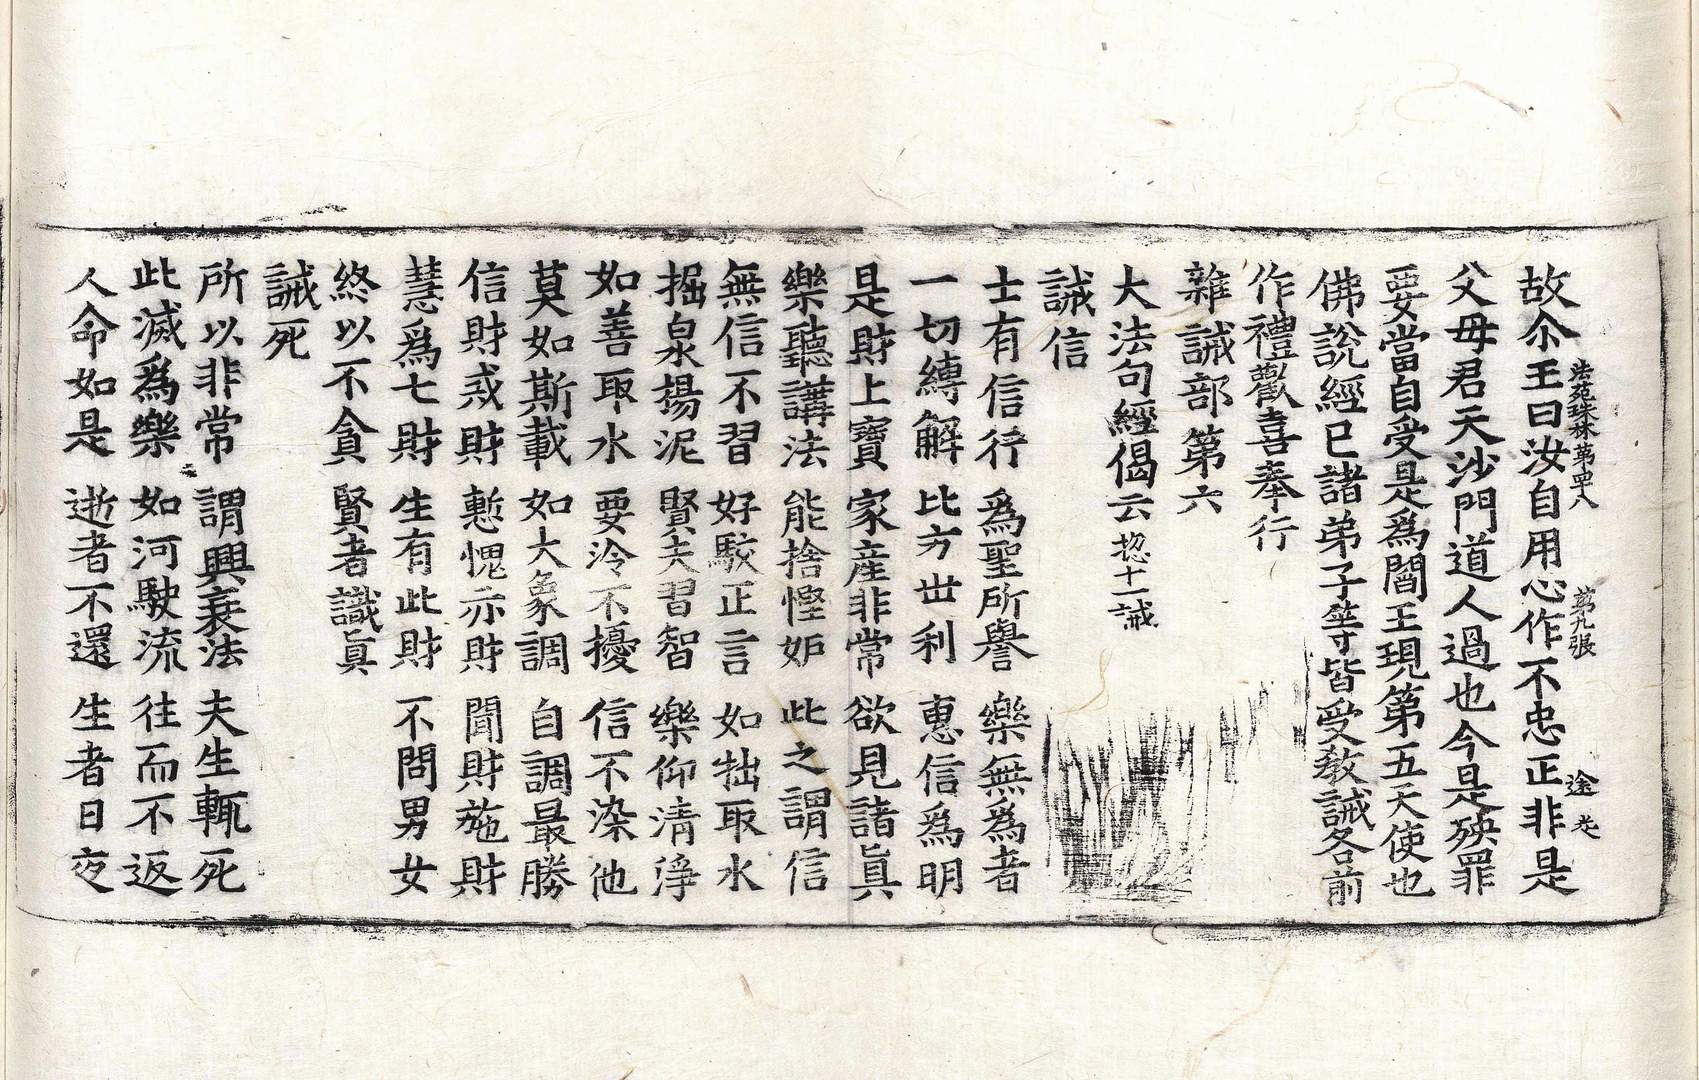 故尒王曰汝自用心作不忠正非是
法苑珠林第四八　第九張　途 𠫵
父母君天沙門道人過也今是殃罪
要當自受是爲閻王現第五天使也
佛說經已諸弟子等皆受敎誡各前
作禮歡喜奉行
雜誡部第六
大法句經偈云揔十一誡
誡信
士有信行　爲聖所譽　樂無爲者
一切縛解　比方世利　惠信爲明
是財上寶　家産非常　欲見諸眞
樂聽講法　能捨慳妬　此之謂信
無信不習　好駮正言　如拙取水
掘泉揚泥　賢夫習智　樂仰清淨
如善取水　要泠不擾　信不染他
莫如斯載　如大象調　自調最勝
信財戒財　慙愧亦財　聞財施財
慧爲七財　生有此財　不問男女
終以不貪　賢者識眞
誡死
所以非常　謂興衰法　夫生輒死
此滅爲樂　如河駛流　往而不返
人命如是　逝者不還　生者日夜